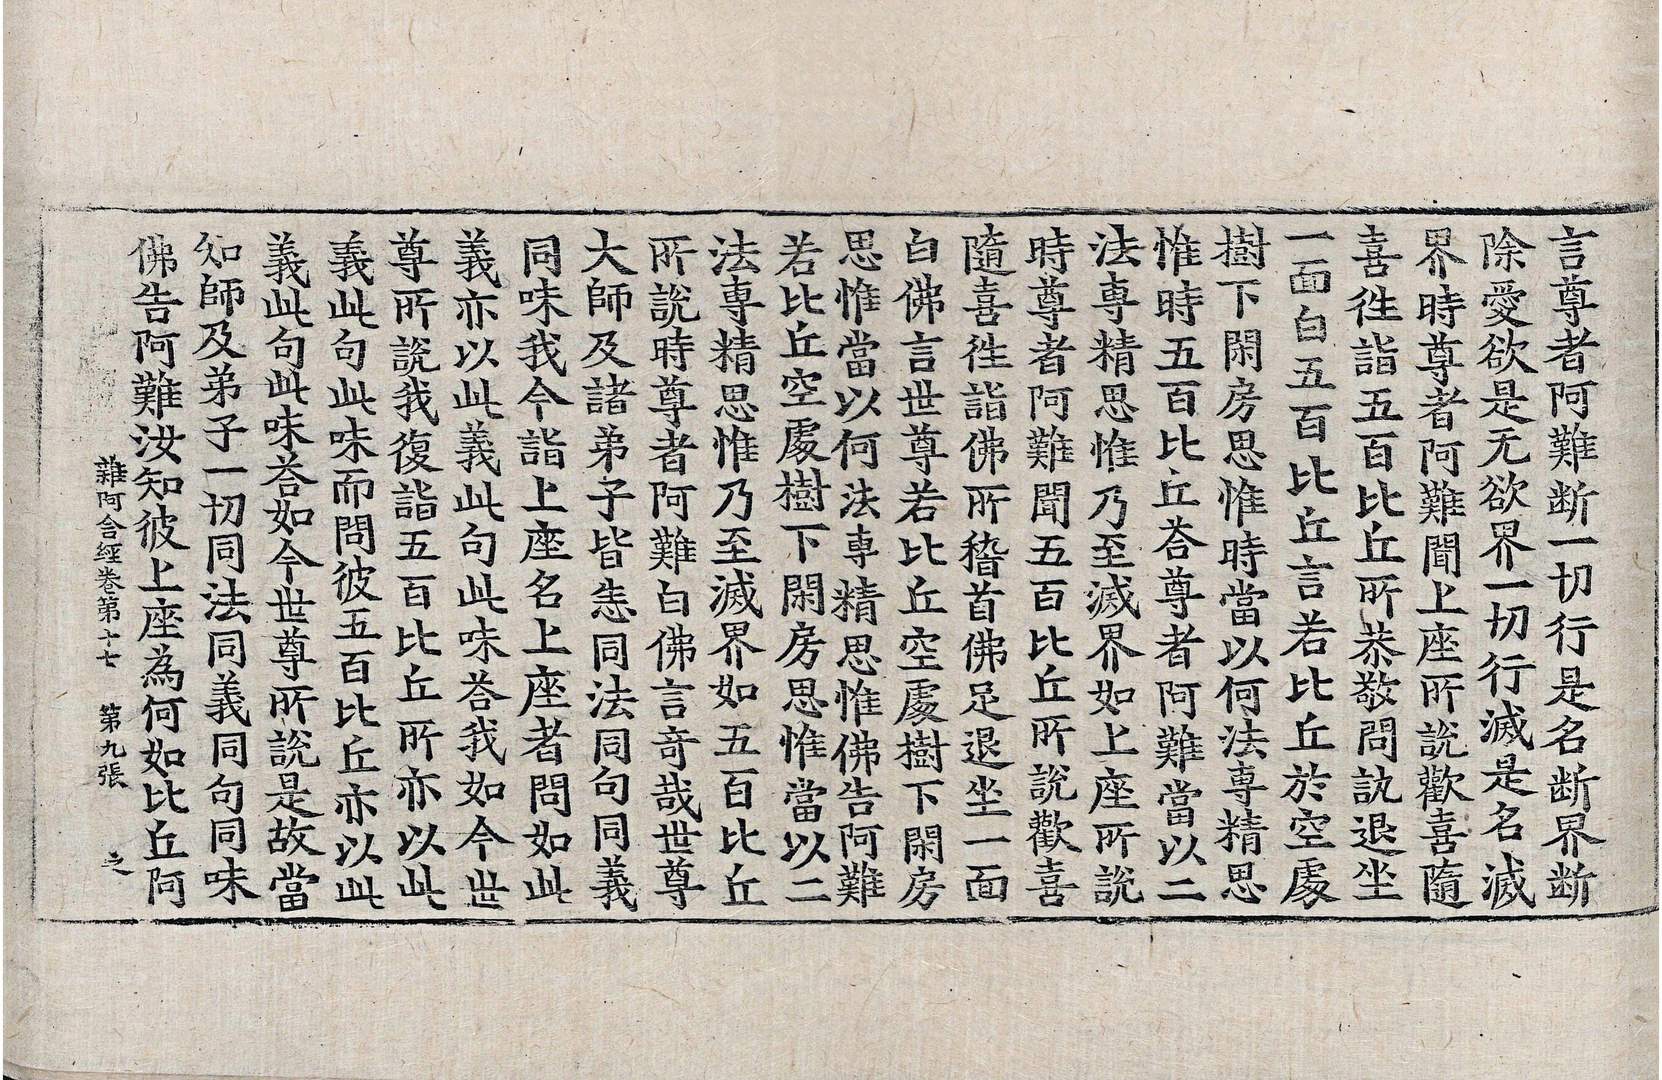 言尊者阿難断一切行是名断界断
除愛欲是无欲界一切行滅是名滅
界時尊者阿難聞上座所說歡喜隨
喜徃詣五百比丘所恭敬問訊退坐
一面白五百比丘言若比丘於空處
樹下閑房思惟時當以何法專精思
惟時五百比丘荅尊者阿難當以二
法専精思惟乃至滅界如上座所說
時尊者阿難聞五百比丘所說歡喜
隨喜徃詣佛所稽首佛足退坐一面
白佛言世尊若比丘空處樹下閑房
思惟當以何法専精思惟佛告阿難
若比丘空處樹下閑房思惟當以二
法専精思惟乃至滅界如五百比丘
所說時尊者阿難白佛言奇哉世尊
大師及諸弟子皆悉同法同句同義
同味我今詣上座名上座者問如此
義亦以此義此句此味荅我如今世
尊所說我復詣五百比丘所亦以此
義此句此味而問彼五百比丘亦以此
義此句此味荅如今世尊所說是故當
知師及弟子一切同法同義同句同味
佛告阿難汝知彼上座為何如比丘阿
雜阿含經卷第十七 第九張 之